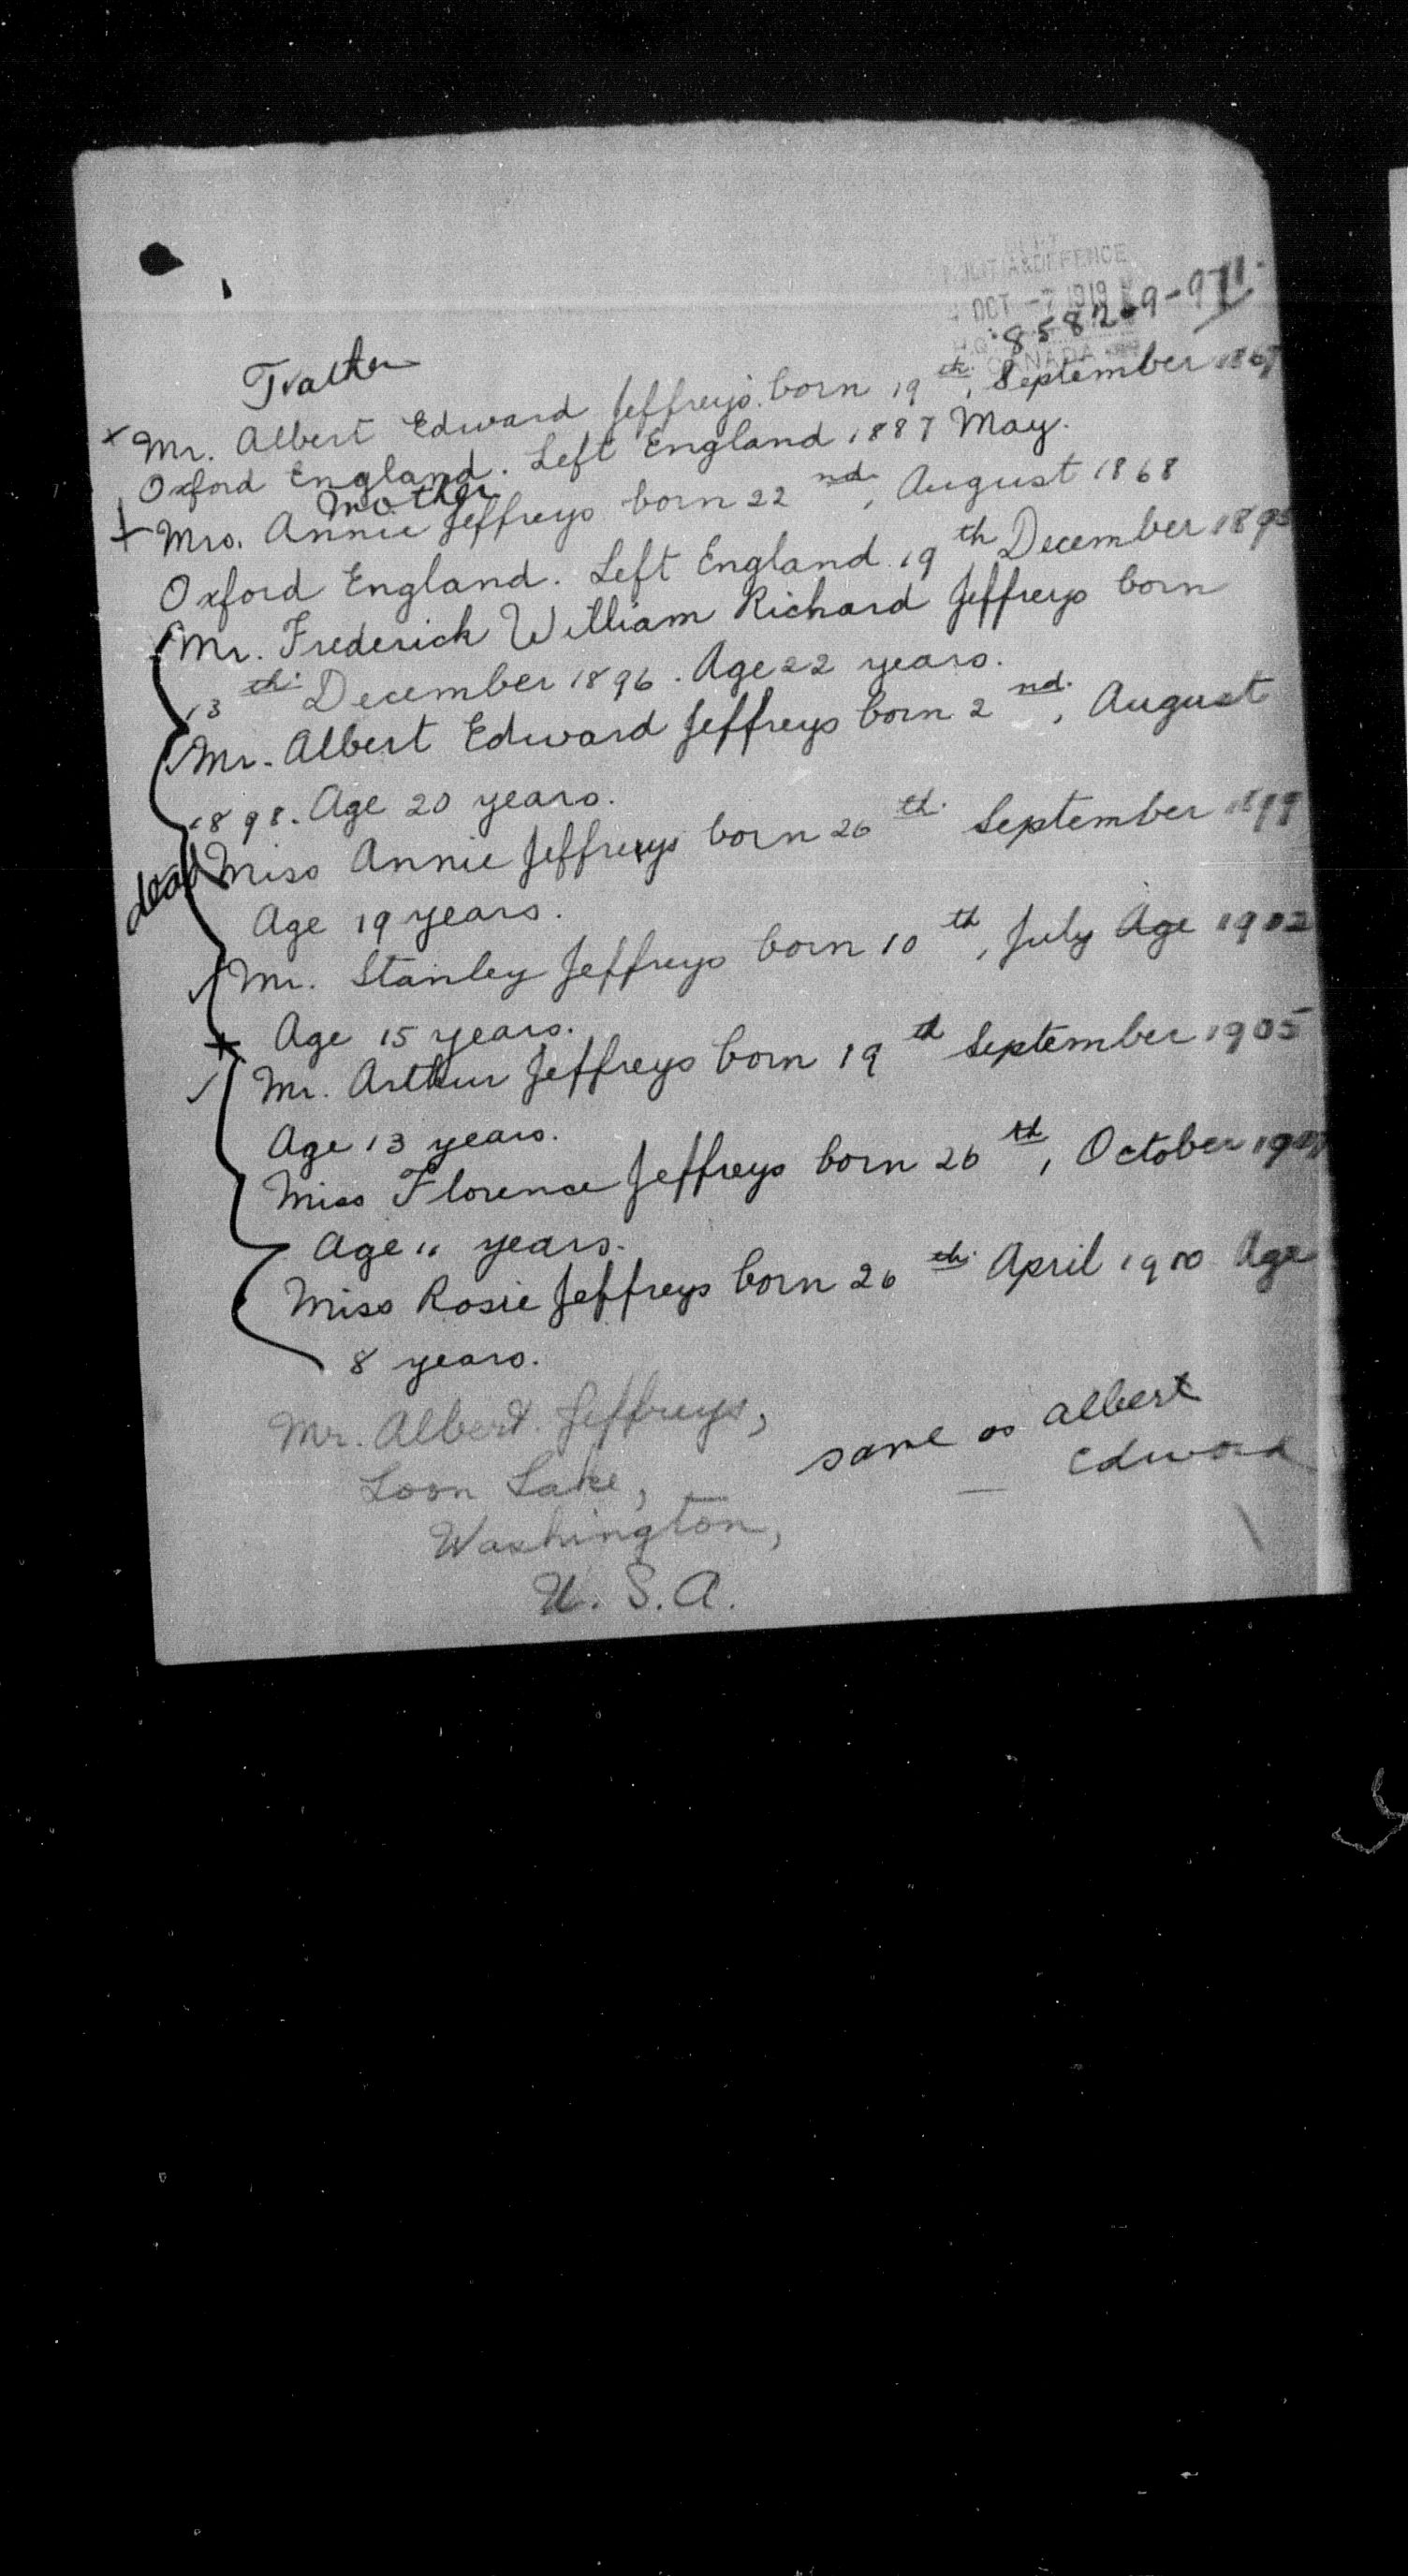 MILITIA & DEFENCE
OCT -7 1919
H.Q. 858269-971
CANADA
Father
x Mr. Albert Edward Jeffreys. born 19th, September 1867
Oxford England. Left England 1887 May.
Mother
+ Mrs. Annie Jeffreys born 22nd, August 1868
Oxford England. Left England 19th December 1895
Mr. Frederick William Richard Jeffreys born
13th. December 1896. Age 22 years.
Mr. Albert Edward Jeffreys born 2nd., August
1898. Age 20 years.
dead Miss Annie Jeffreys born 26th. September 1899
Age 19 years.
Mr. Stanley Jeffreys born 10th, July Age 1902
Age 15 years.
Mr. Arthur Jeffreys born 19th September 1905
Age 13 years.
Miss Florence Jeffreys born 26th, October
Age 11 years.
Miss Rosie Jeffreys born 26th. April 1910 Age
8 years.
Mr. Albert Jeffreys,
Loon Lake,
Washington,
U. S. A.
same as Albert
Edward